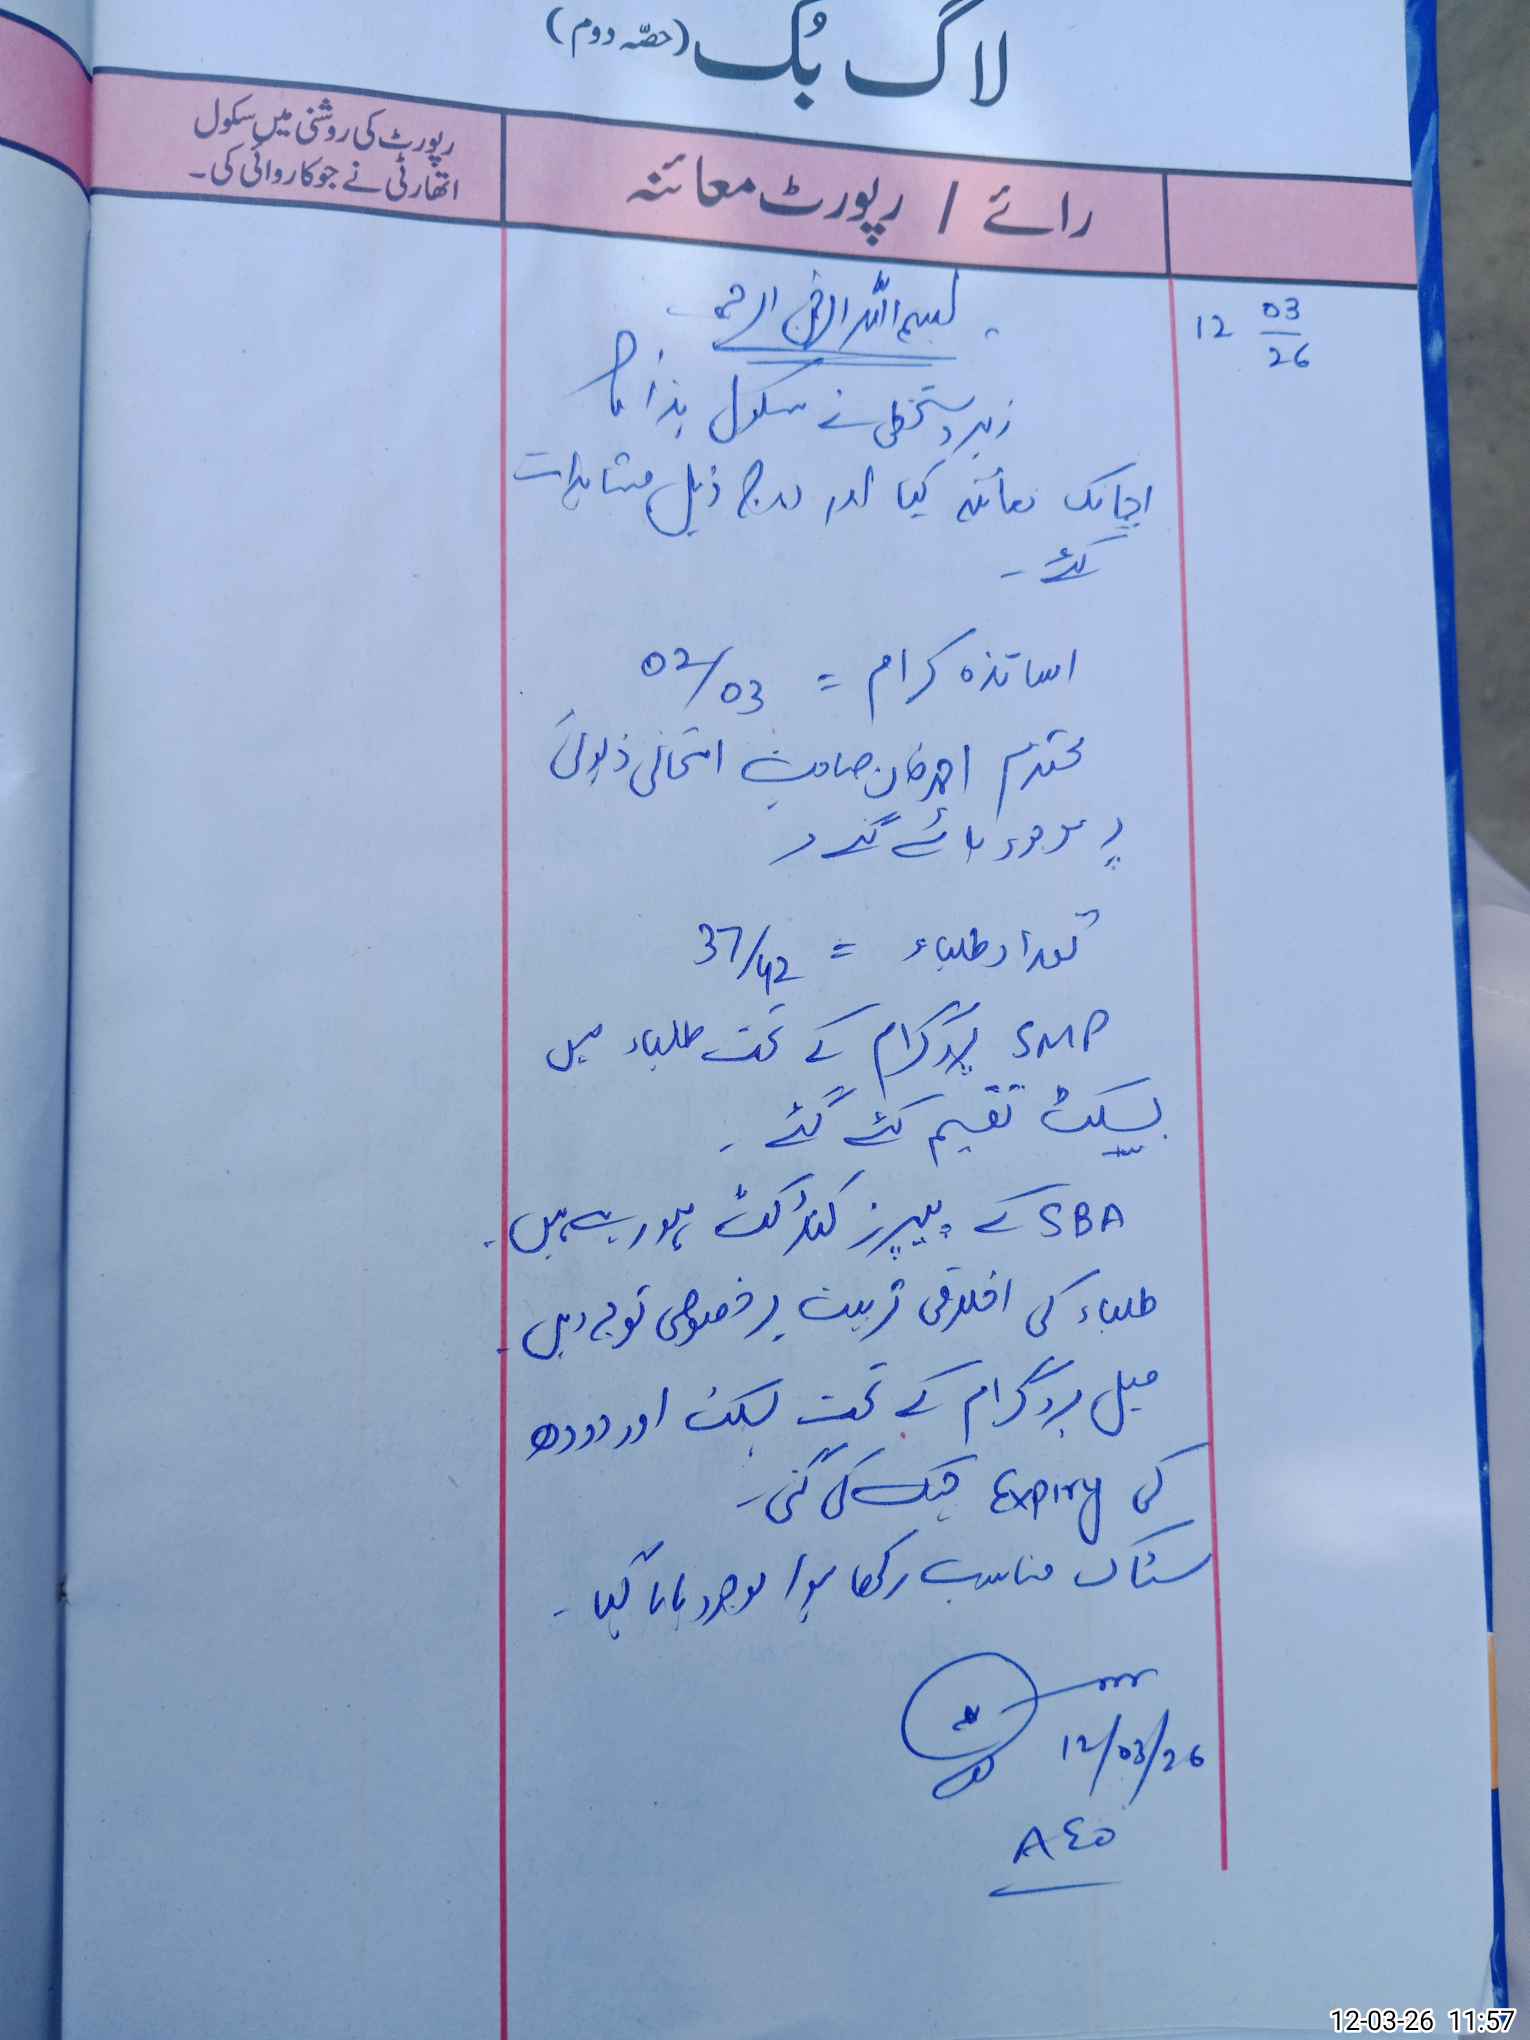 لاگ بُک (حصّہ دوم)
رائے / رپورٹ معائنہ
رپورٹ کی روشنی میں سکول
اتھارٹی نے جو کاروائی کی۔
12 03/26
بسم اللہ الرحمن الرحیم
زیر دستخطی نے سکول ہذا کا
اچانک معائنہ کیا اور درج ذیل مشاہدات
کئے۔
اساتذہ کرام = 02/03
محترم احمد خان صاحب امتحانی ڈیوٹی
پر موجود پائے گئے۔
تعداد طلباء = 37/42
SMP پروگرام کے تحت طلباء میں
بسکٹ تقسیم کئے گئے۔
SBA کے پیپرز کنڈکٹ ہو رہے ہیں۔
طلباء کی اخلاقی تربیت پر خصوصی توجہ دیں۔
میل پروگرام کے تحت بسکٹ اور دودھ
کی Expiry چیک کی گئی۔
سٹاک مناسب رکھا ہوا موجود پایا گیا۔
12/03/26
AEO
12-03-26 11:57